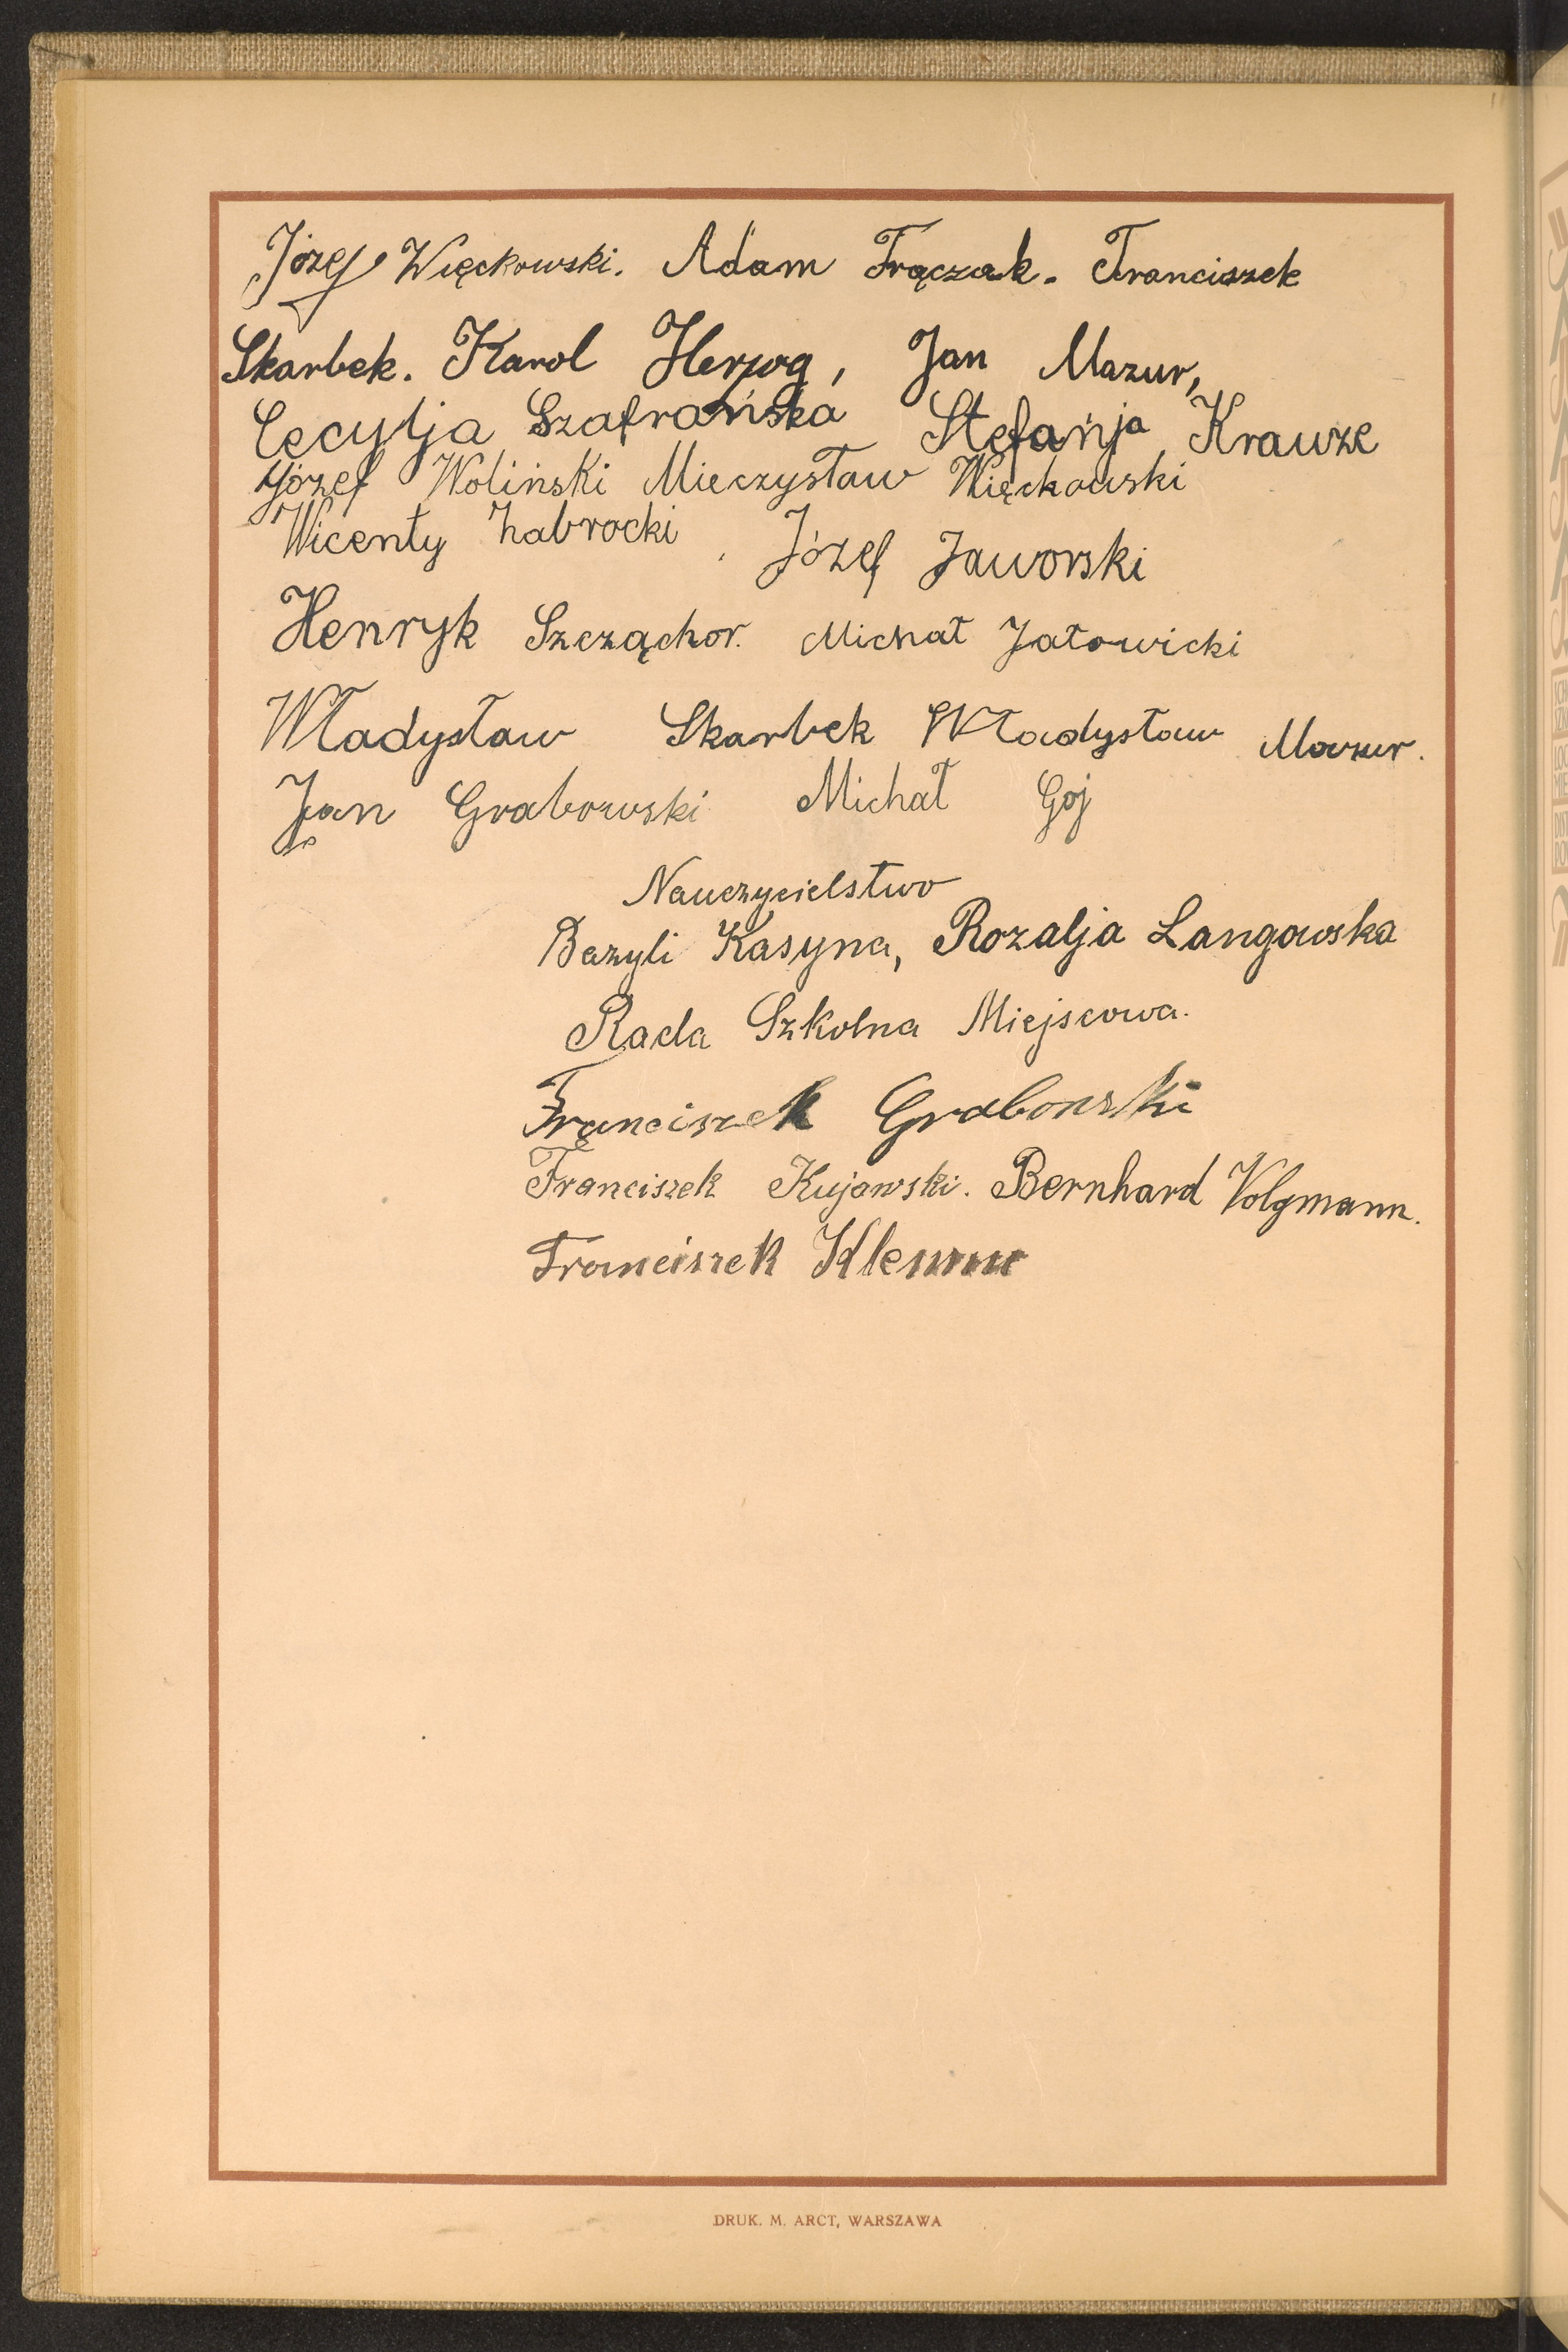 Józef Więckowski. Adam Frączak. Franciszek
Skarbek. Karol Herzog, Jan Mazur,
Cecylja Szafrańska Stefanja Krauze
Józef Woliński Mieczysław Więckowski
Wicenty Żabrocki. Józef Jaworski
Henryk Szcząchor. Michał Jatowicki
Władysław Skarbek Władysław Mazur.
Jan Grabowski Michał Goj
Nauczycielstwo
Bazyli Kasyna, Rozalja Langowska
Rada Szkolna Miejscowa.
Franciszek Grabowski
Franciszek Kujawski. Bernhard Volgmann.
Franciszek
DRUK. M. ARCT, WARSZAWA